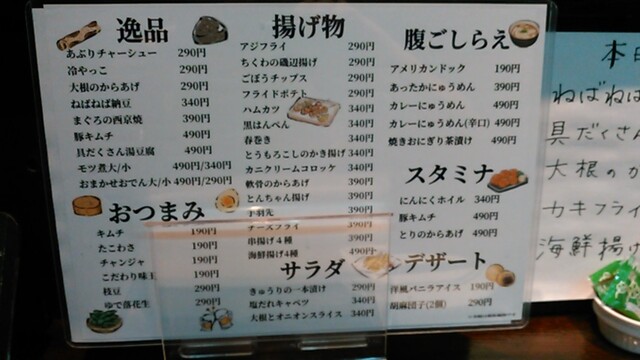 逸品
あぶりチャーシュー 290円
冷やっこ 290円
大根のからあげ 290円
ねばねば納豆 340円
まぐろの西京焼 390円
豚キムチ 490円
具だくさん湯豆腐 490円
モツ煮大/小 490円/340円
おまかせおでん大/小 490円/290円
おつまみ
キムチ 190円
たこわさ 190円
チャンジャ 190円
こだわり味玉 190円
枝豆 290円
ゆで落花生 290円
揚げ物
アジフライ 290円
ちくわの磯辺揚げ 290円
ごぼうチップス 290円
フライドポテト 290円
ハムカツ 340円
黒はんぺん 340円
春巻き 340円
とうもろこしのかき揚げ 340円
カニクリームコロッケ 340円
軟骨のからあげ 390円
とんちゃん揚げ 390円
手羽先 390円
チーズフライ 390円
串揚げ4種 490円
海鮮揚げ4種 490円
サラダ
きゅうりの一本漬け 290円
塩だれキャベツ 340円
大根とオニオンスライス 340円
腹ごしらえ
アメリカンドック 190円
あったかにゅうめん 390円
カレーにゅうめん 490円
カレーにゅうめん(辛口) 490円
焼きおにぎり茶漬け 490円
スタミナ
にんにくホイル 340円
豚キムチ 490円
とりのからあげ 490円
デザート
洋風バニラアイス 190円
胡麻団子(2個) 290円
本日
ねばねば
具だくさん
大根のか
カキフライ
海鮮揚げ